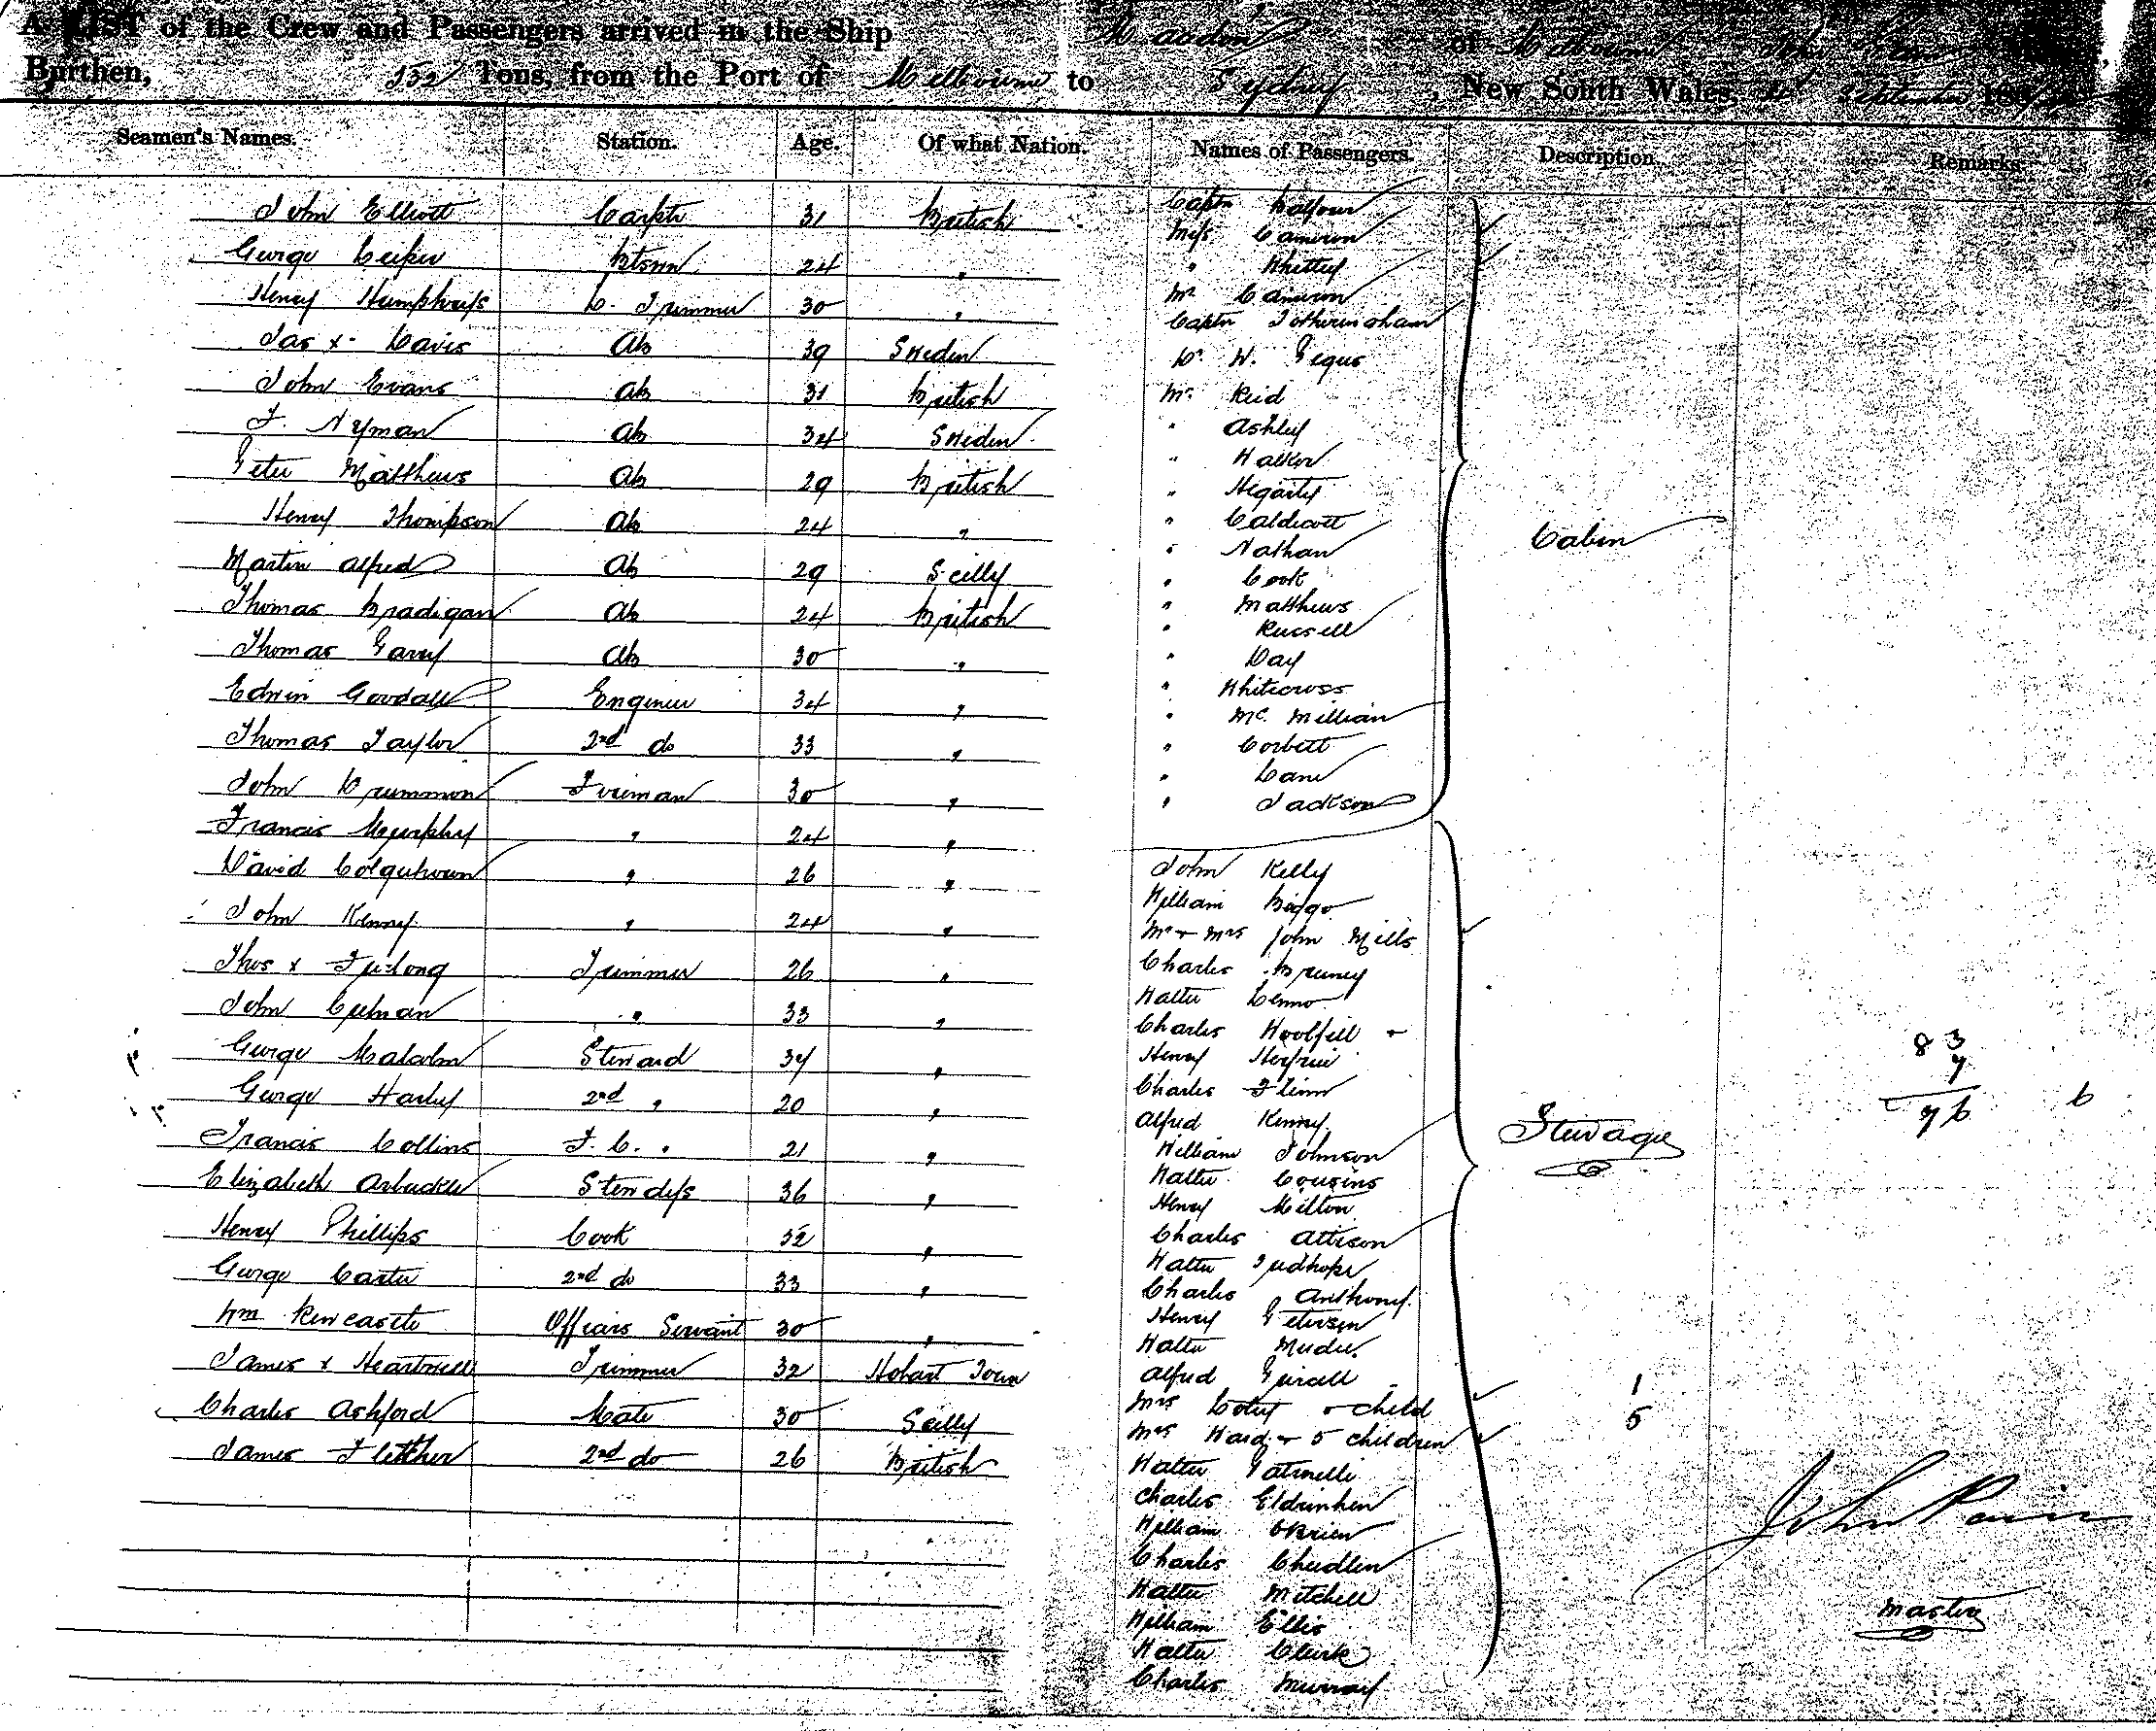 A LIST of the Crew and Passengers arrived in the Ship Macedon of Melbourne John
Burthen, 532 Tons, from the Port of Melbourne to Sydney, New South Wales, September
Seamen's Names. Station. Age. Of what Nation. Names of Passengers. Description. Remarks.
John Elliott Carptr 31 British
George Btswn 24 "
Henry Humphreys C. Trimmer 30 "
Jas x Davis Ab 39 Sweden
John Evans Ab 31 British
F. Nyman Ab 34 Sweden
Peter Matthews Ab 29 British
Henry Thompson Ab 24 "
Martin Alfred Ab 29 Scilly
Thomas Bradigan Ab 24 British
Thomas Garry Ab 30 "
Edwin Goodall Engineer 34 "
Thomas Taylor 2nd do 33 "
John Drummon Fireman 30 "
Francis Murphy " 24 "
David Colquhoun " 26 "
John Kenny " 24 "
Thos x Furlong Trimmer 26 "
John " 33 "
George Malcolm Steward 34 "
George Harley 2nd " 20 "
Francis Collins F. C. " 21 "
Elizabeth Arbuckle Stewdess 36 "
Henry Phillips Cook 32 "
George Carter 2nd do 33 "
Wm Officers Servant 30 "
James x Heartwell Trimmer 32 Hobart Town
Charles Ashford Mate 30 Scilly
James Fletcher 2nd do 26 British
Captn Balfour
Miss Cameron
" Whittey
Mr Cameron
Captn Fotheringham
Dr W. Pegus
Mr Reid
" Ashley
" Walker
" Hegarty
" Caldicott
" Nathan
" Cook
" Matthews
" Russell
" Day
" Whitecross
" Mc Millian
" Corbett
" Cane
" Jackson
Cabin
John Kelly
William Biggo
Mr + Mrs John Mills
Charles Bruney
Walter Lenno
Charles Woolfell
Henry
Charles Flinn
Alfred Kenny
William Johnson
Walter Cousins
Henry Milton
Charles Attison
Walter Pudhope
Charles Anthony
Henry Petersen
Walter
Alfred
Mrs Cotey + child 1
Mrs Ward + 5 children 5
Walter
Charles
William OBrien
Charles Chudlen
Walter Mitchell
William Ellis
Walter Clerk
Charles Murray
Steerage
83
7
76 6
John
Master